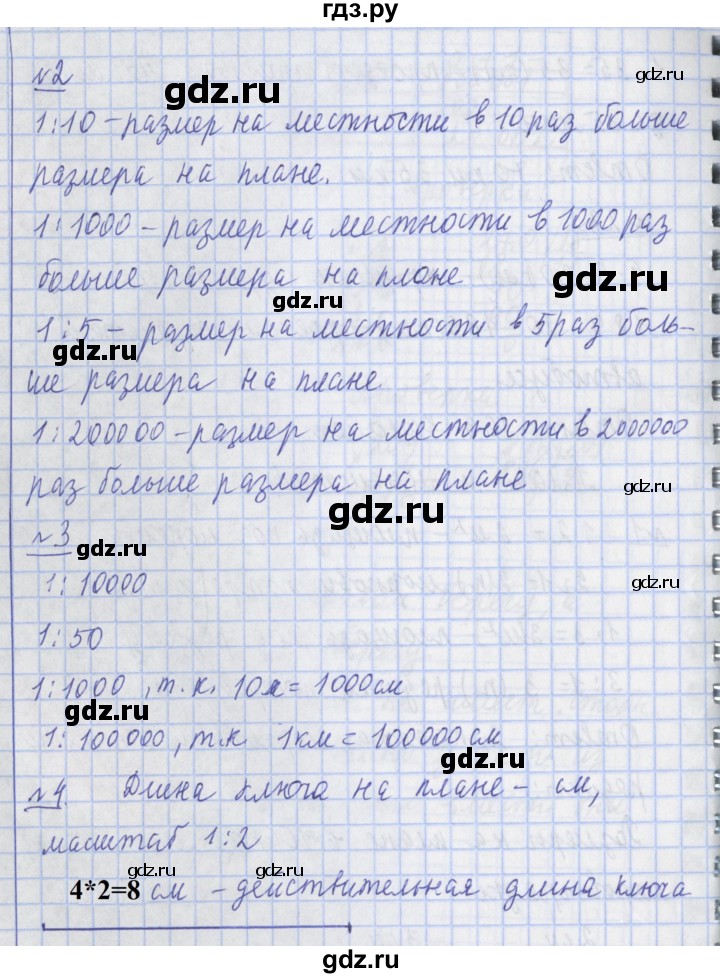 гдз.ру
№2
gdz.ru
1:10 – размер на местности в 10 раз больше
размера на плане.
gdz.ru
1:1000 – размер на местности в 1000 раз
больше размера на плане
gdz.ru
gdz.ru
1:5 – размер на местности в 5 раз боль-
gdz.ru
ше размера на плане
1:200000 – размер на местности в 2000000
раз больше размера на плане
gdz.ru
gdz.ru
№3
gdz.ru
1:10000
gdz.ru
1:50
1:1000, т.к. 10м = 1000см
gdz.ru
1:100000, т.к 1км = 100000см
gdz.ru
№4 Длина ключа на плане – см,
масштаб 1:2
gdz.ru gdz.ru
4*2=8 см – действительная длина ключа